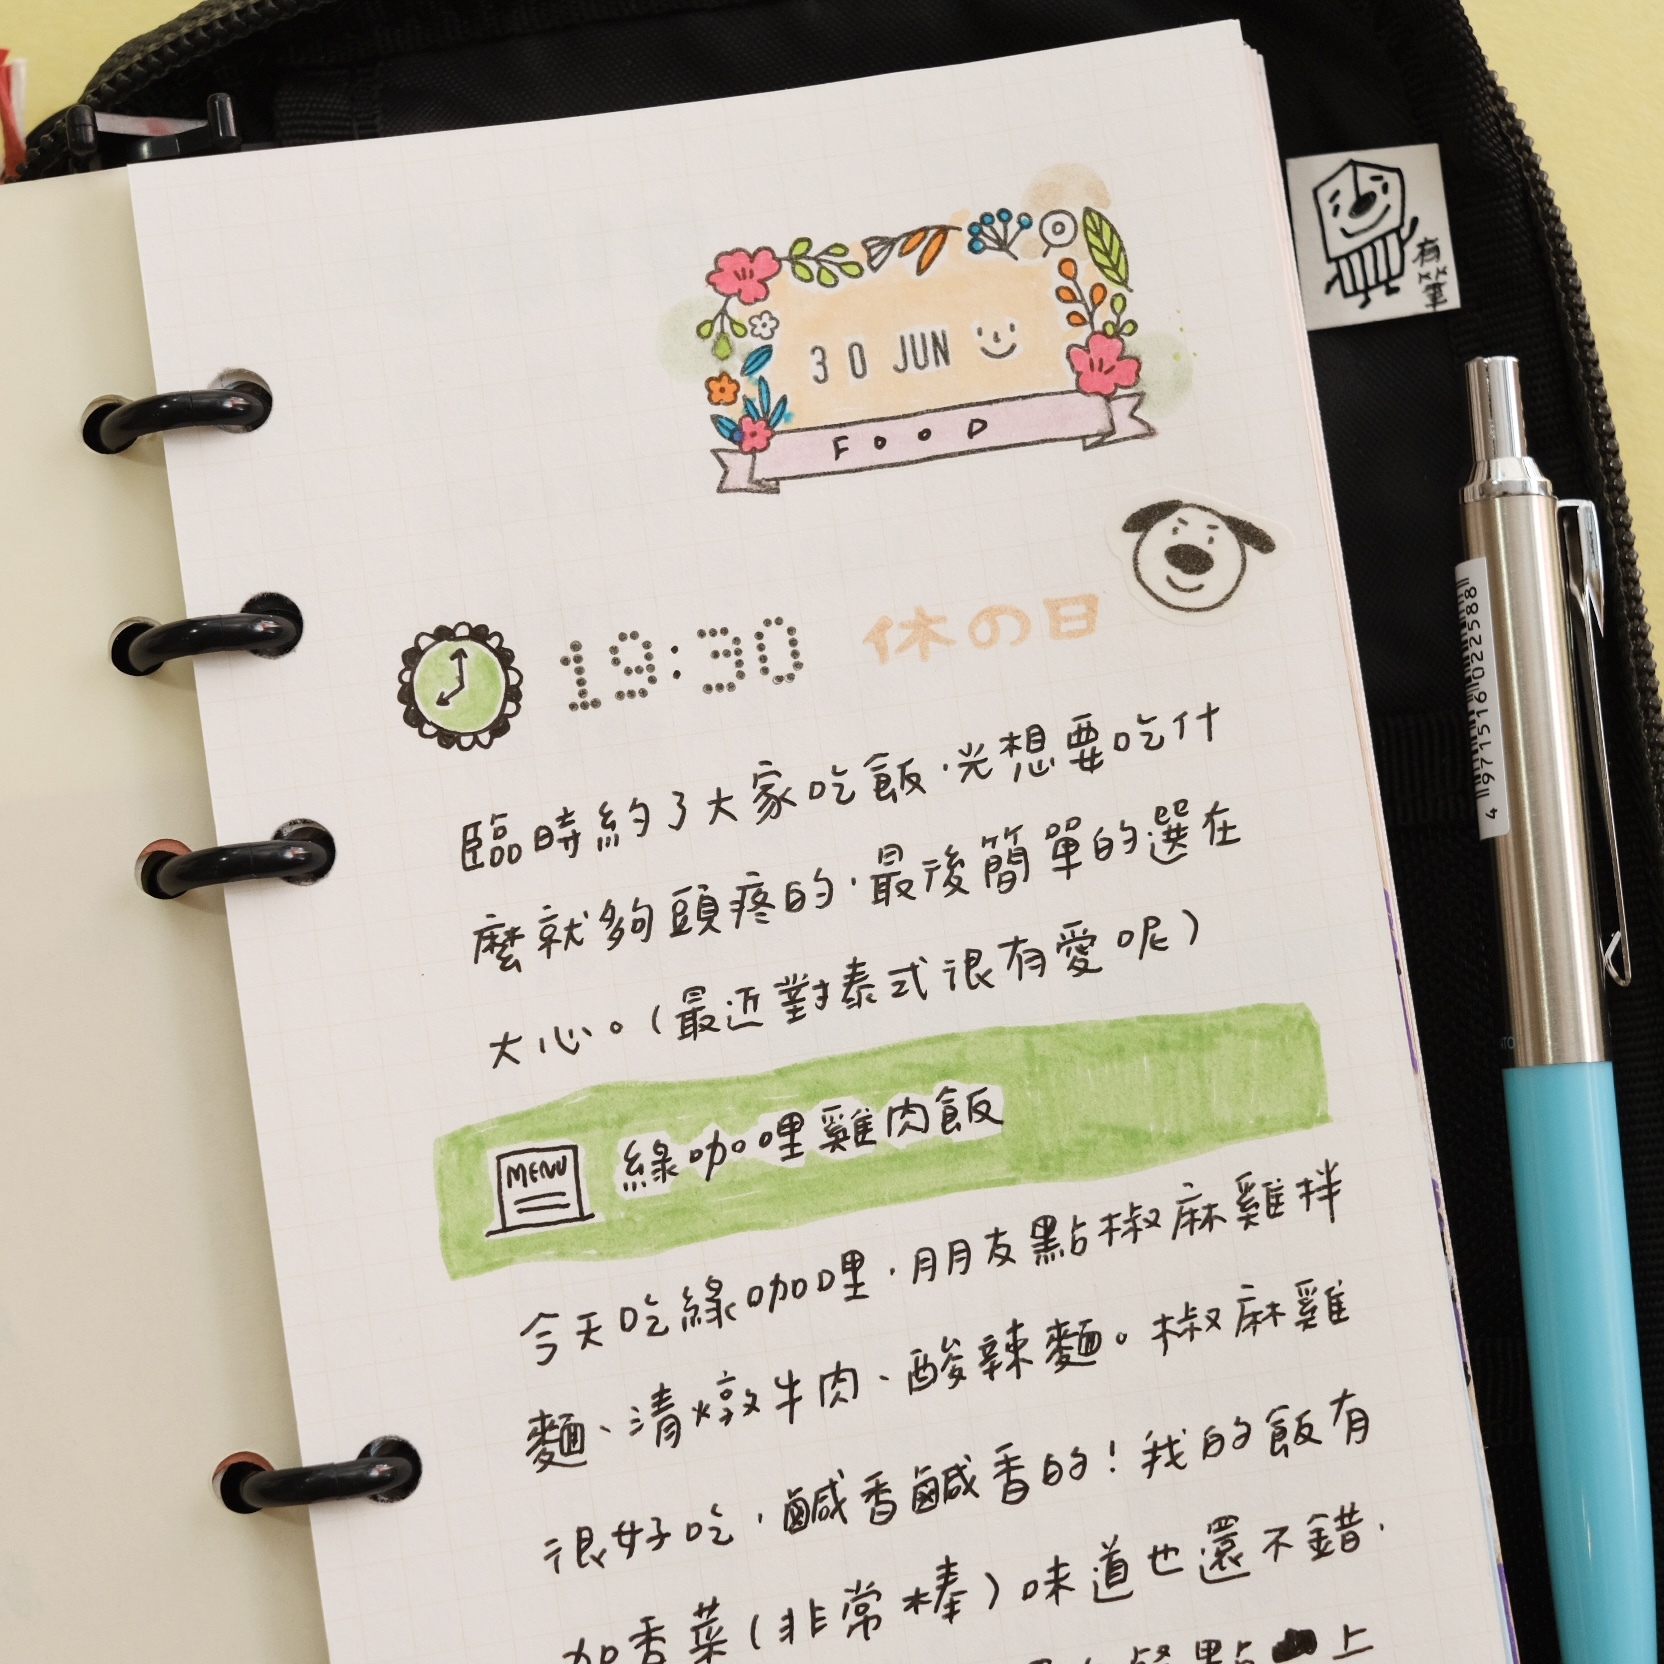 有筆
30 JUN
FOOD
19:30 休の日
臨時約了大家吃飯，光想要吃什
麼就夠頭疼的，最後簡單的選在
大心。（最近對泰式很有愛呢）
MENU 綠咖哩雞肉飯
今天吃綠咖哩，朋友點椒麻雞拌
麵、清燉牛肉、酸辣麵。椒麻雞
很好吃，鹹香鹹香的！我的飯有
加香菜（非常棒）味道也還不錯，
點 上
4 971516 022588